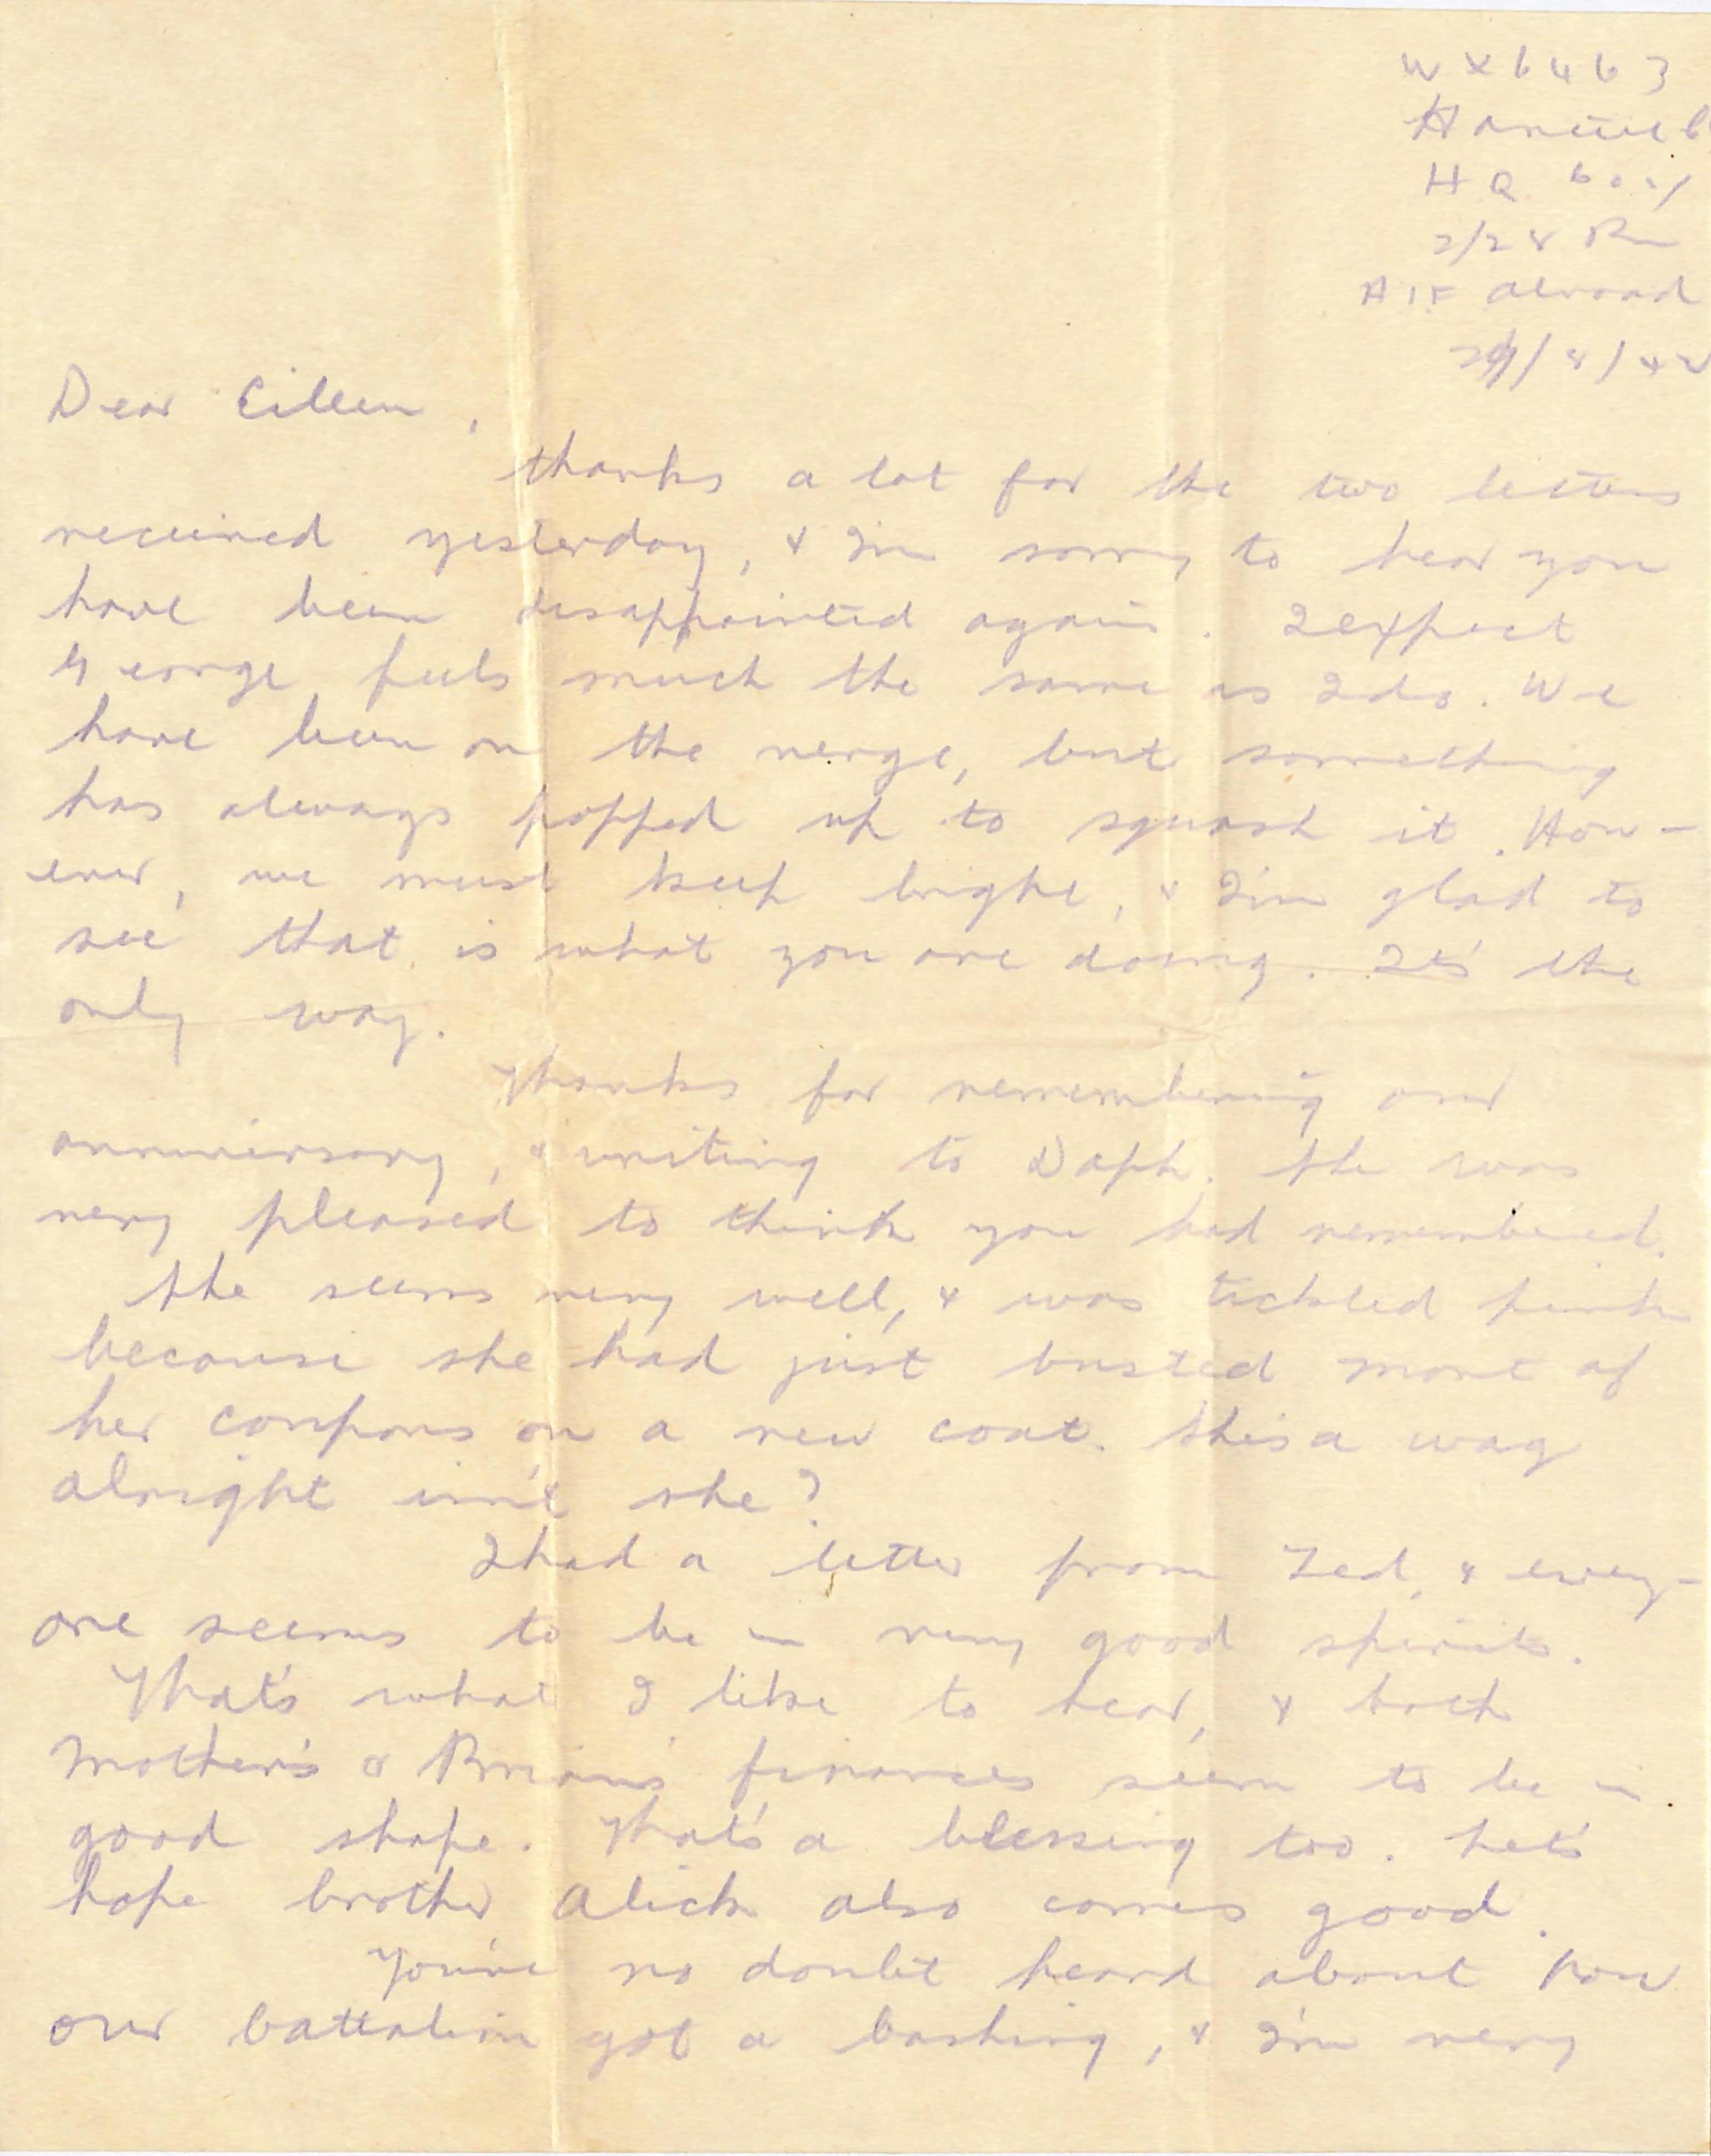 WX6463
HQ Coy
2/28 Bn
AIF abroad
/8/42
Dear Eileen,
thanks a lot for the two letters
received yesterday, & I'm sorry to hear you
have been disappointed again. I expect
George feels much the same as I do. We
have been on the verge, but something
has always popped up to squash it. How-
ever, we must keep bright, & I'm glad to
see that is what you are doing. It's the
only way.
Thanks for remembering our
anniversary, & writing to Daph. She was
very pleased to think you had remembered.
She seems very well, & was tickled pink
because she had just busted most of
her coupons on a new coat. She's a wag
alright isn't she?
I had a letter from Ted, & every-
one seems to be in very good spirits.
That's what I like to hear, & both
Mother's & Brian's finances seem to be in
good shape. That's a blessing too. Let's
hope brother Alick also comes good.
You've no doubt heard about how
our battalion got a bashing, & I'm very